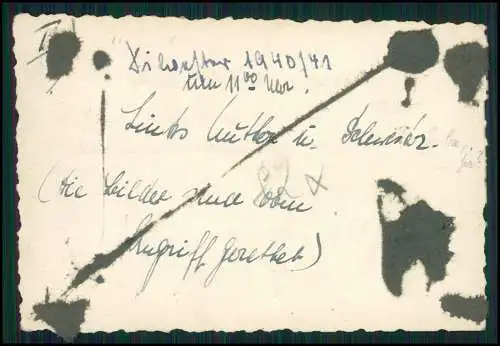 Silvester 1940/41
um 11 00 Uhr.
Links Mutter u. Schwester.
(Die Bilder sind beim
Angriff gerettet)